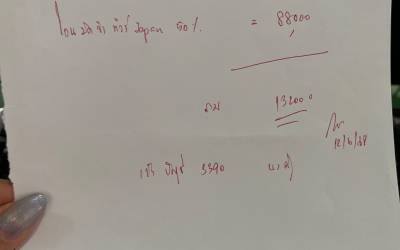 โอนมัดจำ ทัวร์ Japan 50% = 88000
รวม 132000
12/6/68
เข้า บัญชี 3390